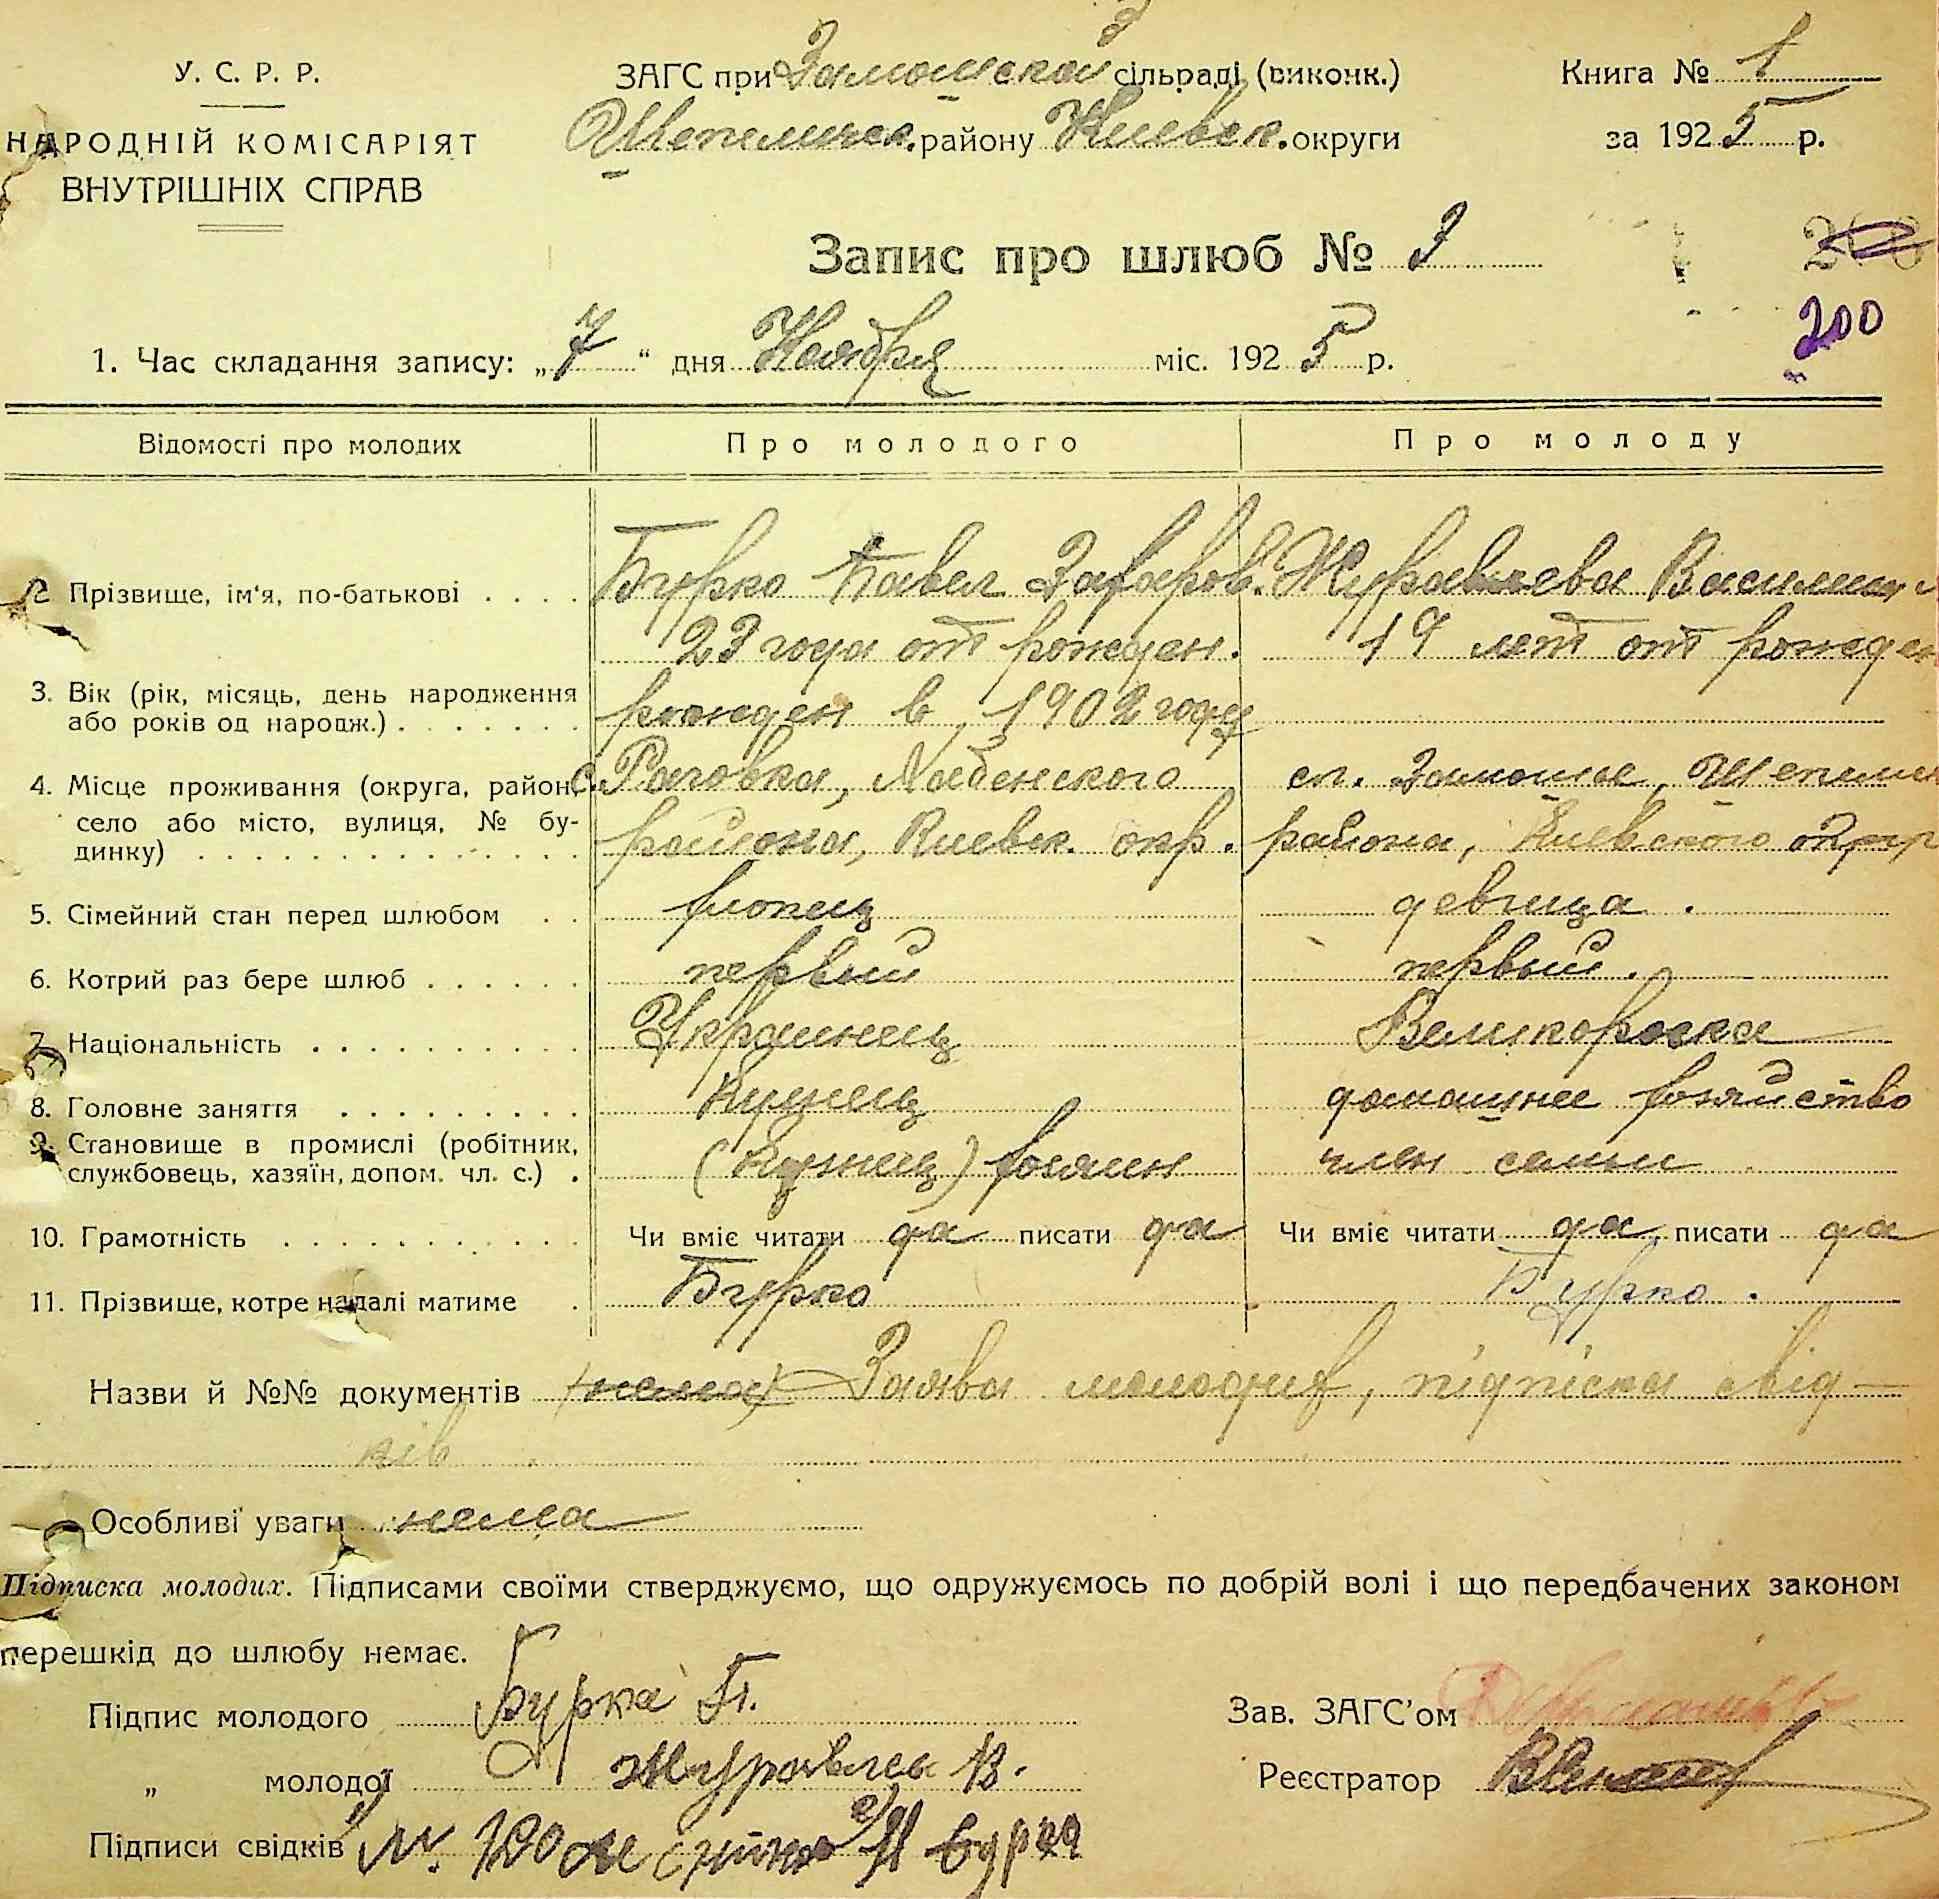 У. С. Р. Р.
НАРОДНІЙ КОМІСАРІЯТ
ВНУТРІШНІХ СПРАВ
ЗАГС при Замошской сільраді (виконк.)
Шепелическ. району Киевск. округи
Книга № 1
за 1925 р.
Запис про шлюб № 3
200
1. Час складання запису: „7“ дня Ноября міс. 1925 р.
Відомості про молодих Про молодого Про молоду
2. Прізвище, ім'я, по-батькові . . . . Бурко Павел Захаров. Журавлева Василиса
23 года от рожден. 19 лет от рожден
3. Вік (рік, місяць, день народження або років од народж.) . . . . . . . рожден в 1902 году
4. Місце проживання (округа, район, село або місто, вулиця, № будинку) . . . . с. Раговка, Хабенского района, Киевск. окр. сл. Замошье, Шепелич района, Киевского окр
5. Сімейний стан перед шлюбом . . хлопец девица.
6. Котрий раз бере шлюб . . . . . . первый первый.
7. Національність . . . . . . . . . . Украинец Великороска
8. Головне заняття . . . . . . . . . Кузнец домашнее хозяйство
9. Становище в промислі (робітник, службовець, хазяїн, допом. чл. с.) . (Кузнец) хозяин член семьи
10. Грамотність . . . . . . . . . . . Чи вміє читати да писати да Чи вміє читати да писати да
11. Прізвище, котре надалі матиме . Бурко Бурко.
Назви й №№ документів (нема) Заява молодих, підписка свід-
ків
Особливі уваги нема
Підписка молодих. Підписами своїми стверджуємо, що одружуємось по добрій волі і що передбачених законом
перешкід до шлюбу немає.
Підпис молодого Бурка П.
„ молодої Журавлева В.
Підписи свідків
Зав. ЗАГС'ом
Реєстратор